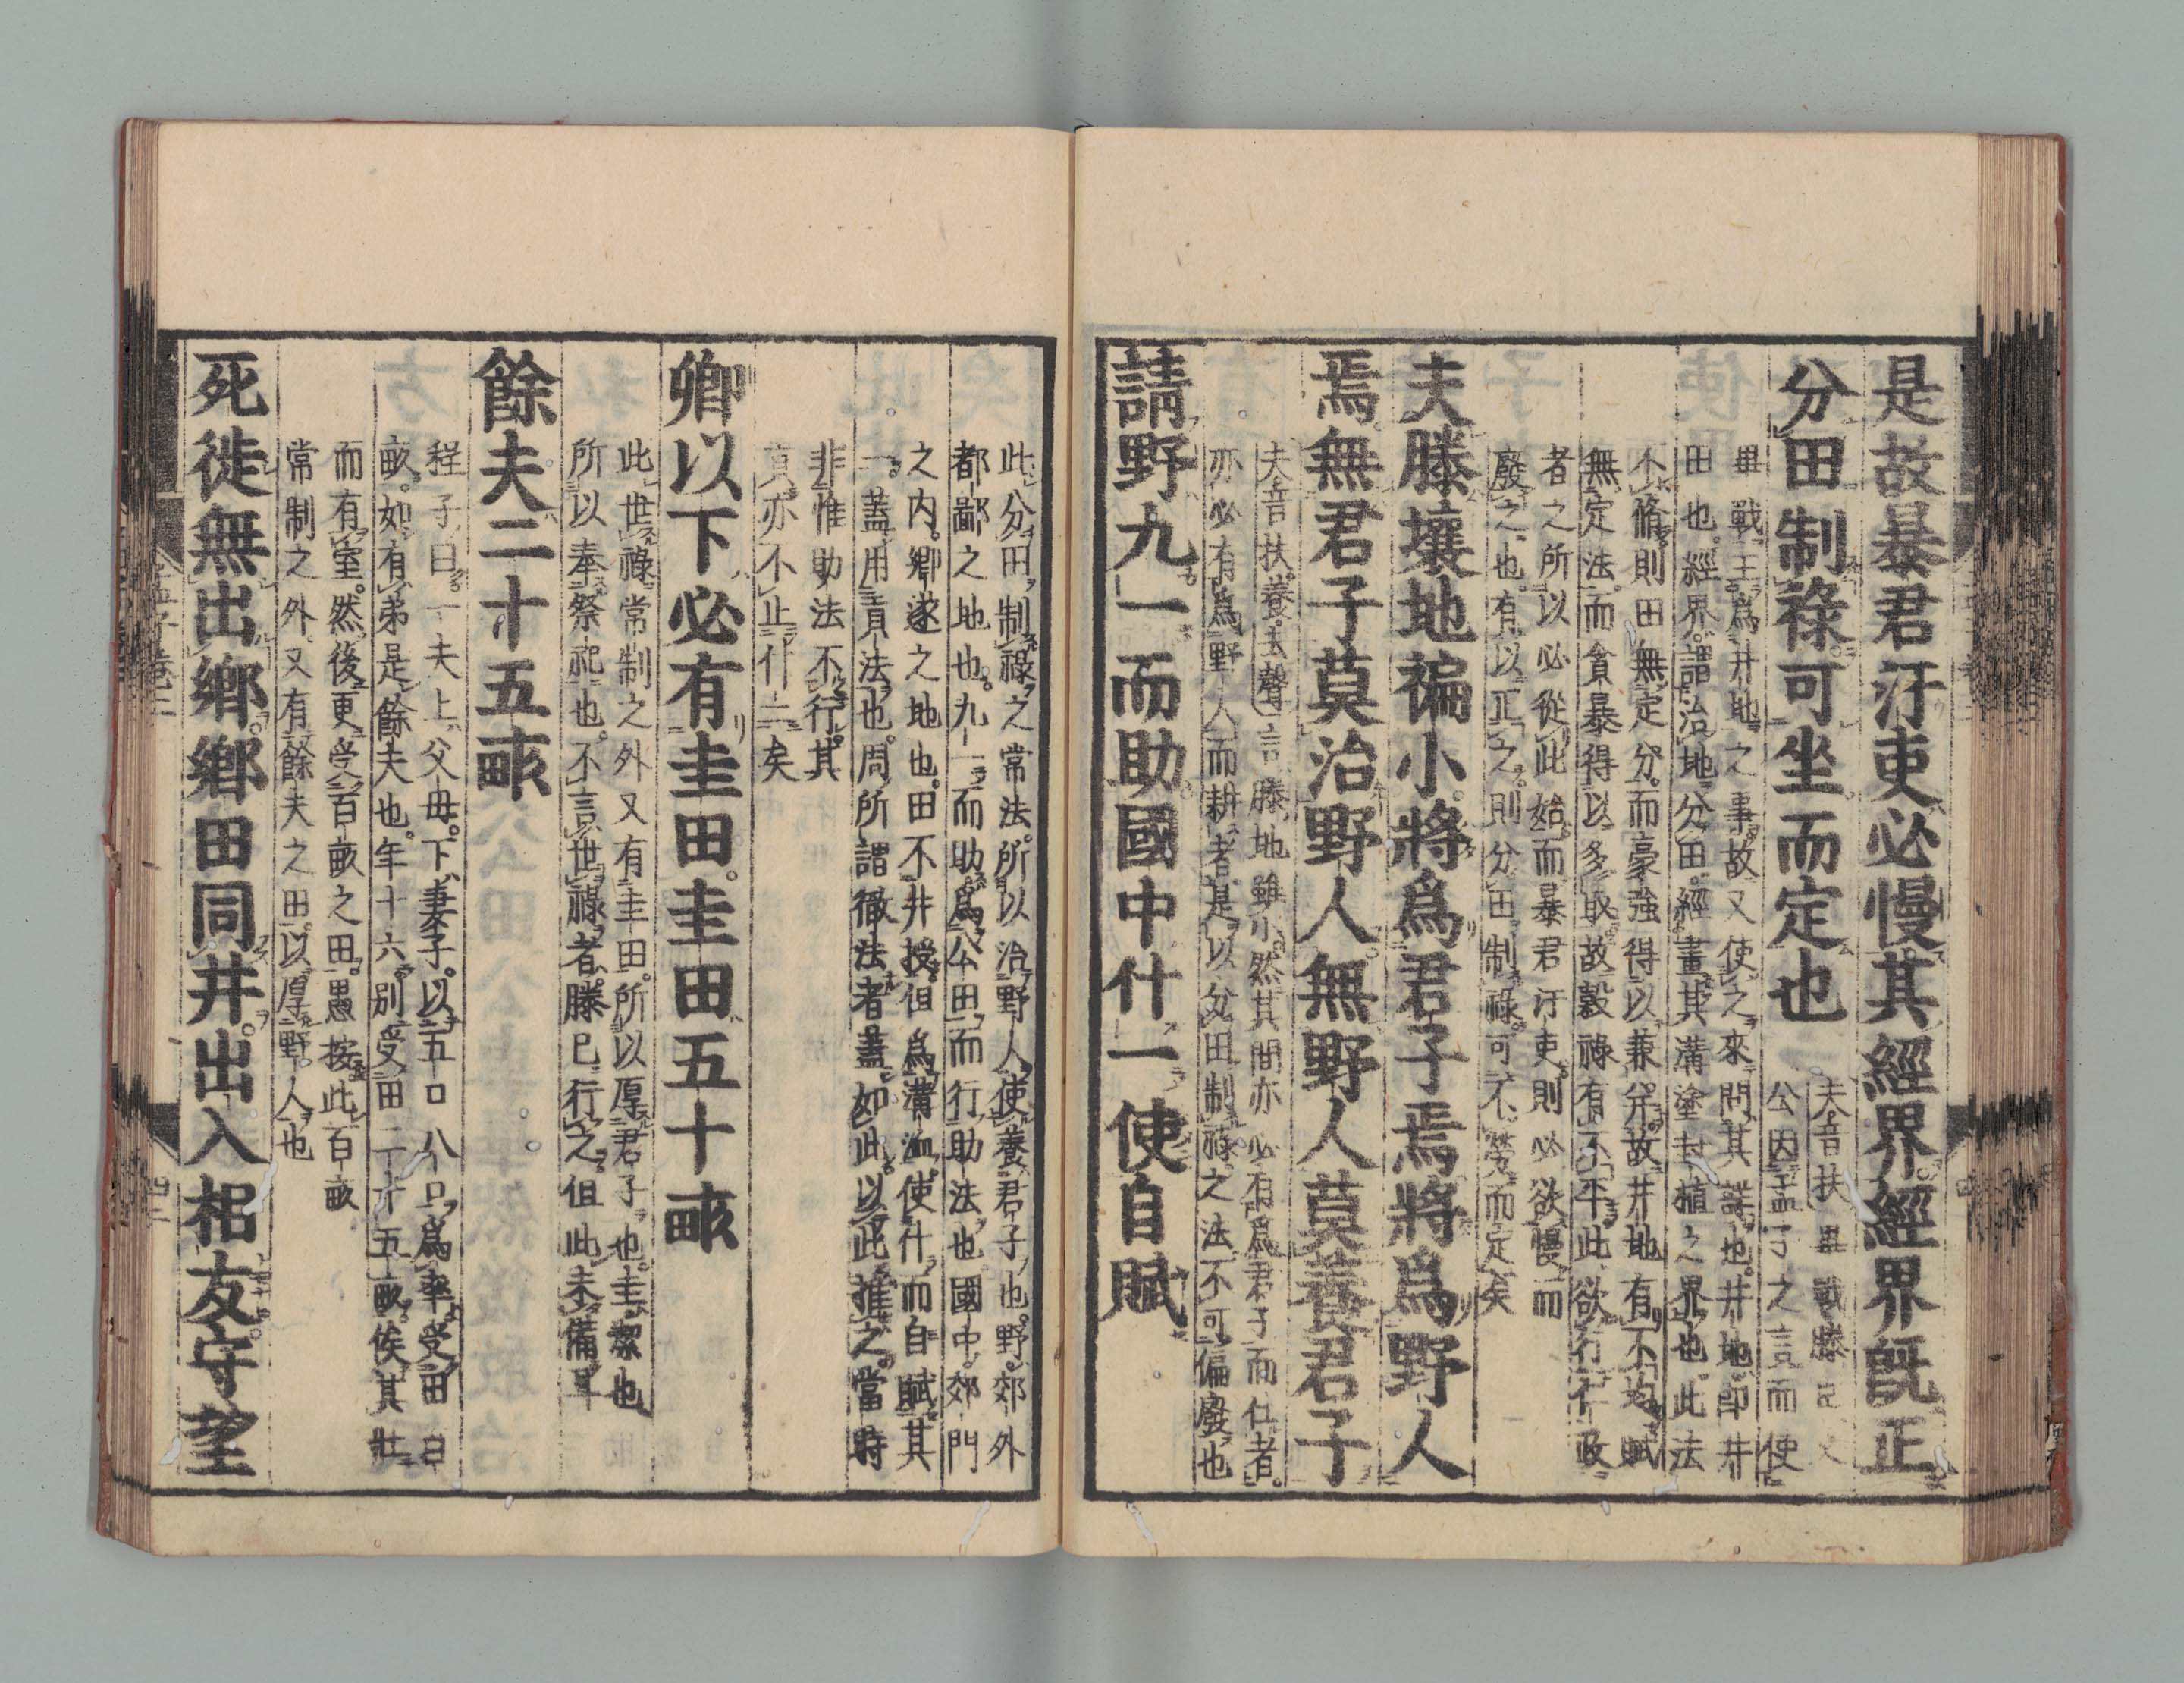 是故暴君汙吏必慢其經界經界既正
分田制祿可坐而定也
夫音扶 畢戰滕臣文
公因孟子之言而使
畢戰主爲井地之事故又使之來問其詳也井地即井
田也經界謂治地分田經畫其溝塗封植之界也此法
不脩則田無定分而豪強得以兼并故井地有不均賦
無定法而貪暴得以多取故穀祿有不平此欲行仁政
者之所以必從此始而暴君汙吏則必欲慢而
廢之也有以正之則分田制祿可不勞而定矣
夫滕壤地褊小將爲君子焉將爲野人
焉無君子莫治野人無野人莫養君子
夫音扶養去聲 言滕地雖小然其間亦必有爲君子而仕者
亦必有爲野人而耕者是以分田制祿之法不可偏廢也
請野九一而助國中什一使自賦
此分田制祿之常法所以治野人使養君子也野郊外
都鄙之地也九一而助爲公田而行助法也國中郊門
之内鄉遂之地也田不井授但爲溝洫使什而自賦其
一蓋用貢法也周所謂徹法者蓋如此以此推之當時
非惟助法不行其
貢亦不止什一矣
卿以下必有圭田圭田五十畝
此世祿常制之外又有圭田所以厚君子也圭潔也
所以奉祭祀也不言世祿者滕已行之但此未備耳
餘夫二十五畝
程子曰一夫上父母下妻子以五口八口爲率受田百
畝如有弟是餘夫也年十六別受田二十五畝俟其壯
而有室然後更受百畝之田愚按此百畝
常制之外又有餘夫之田以厚野人也
死徙無出鄉鄉田同井出入相友守望